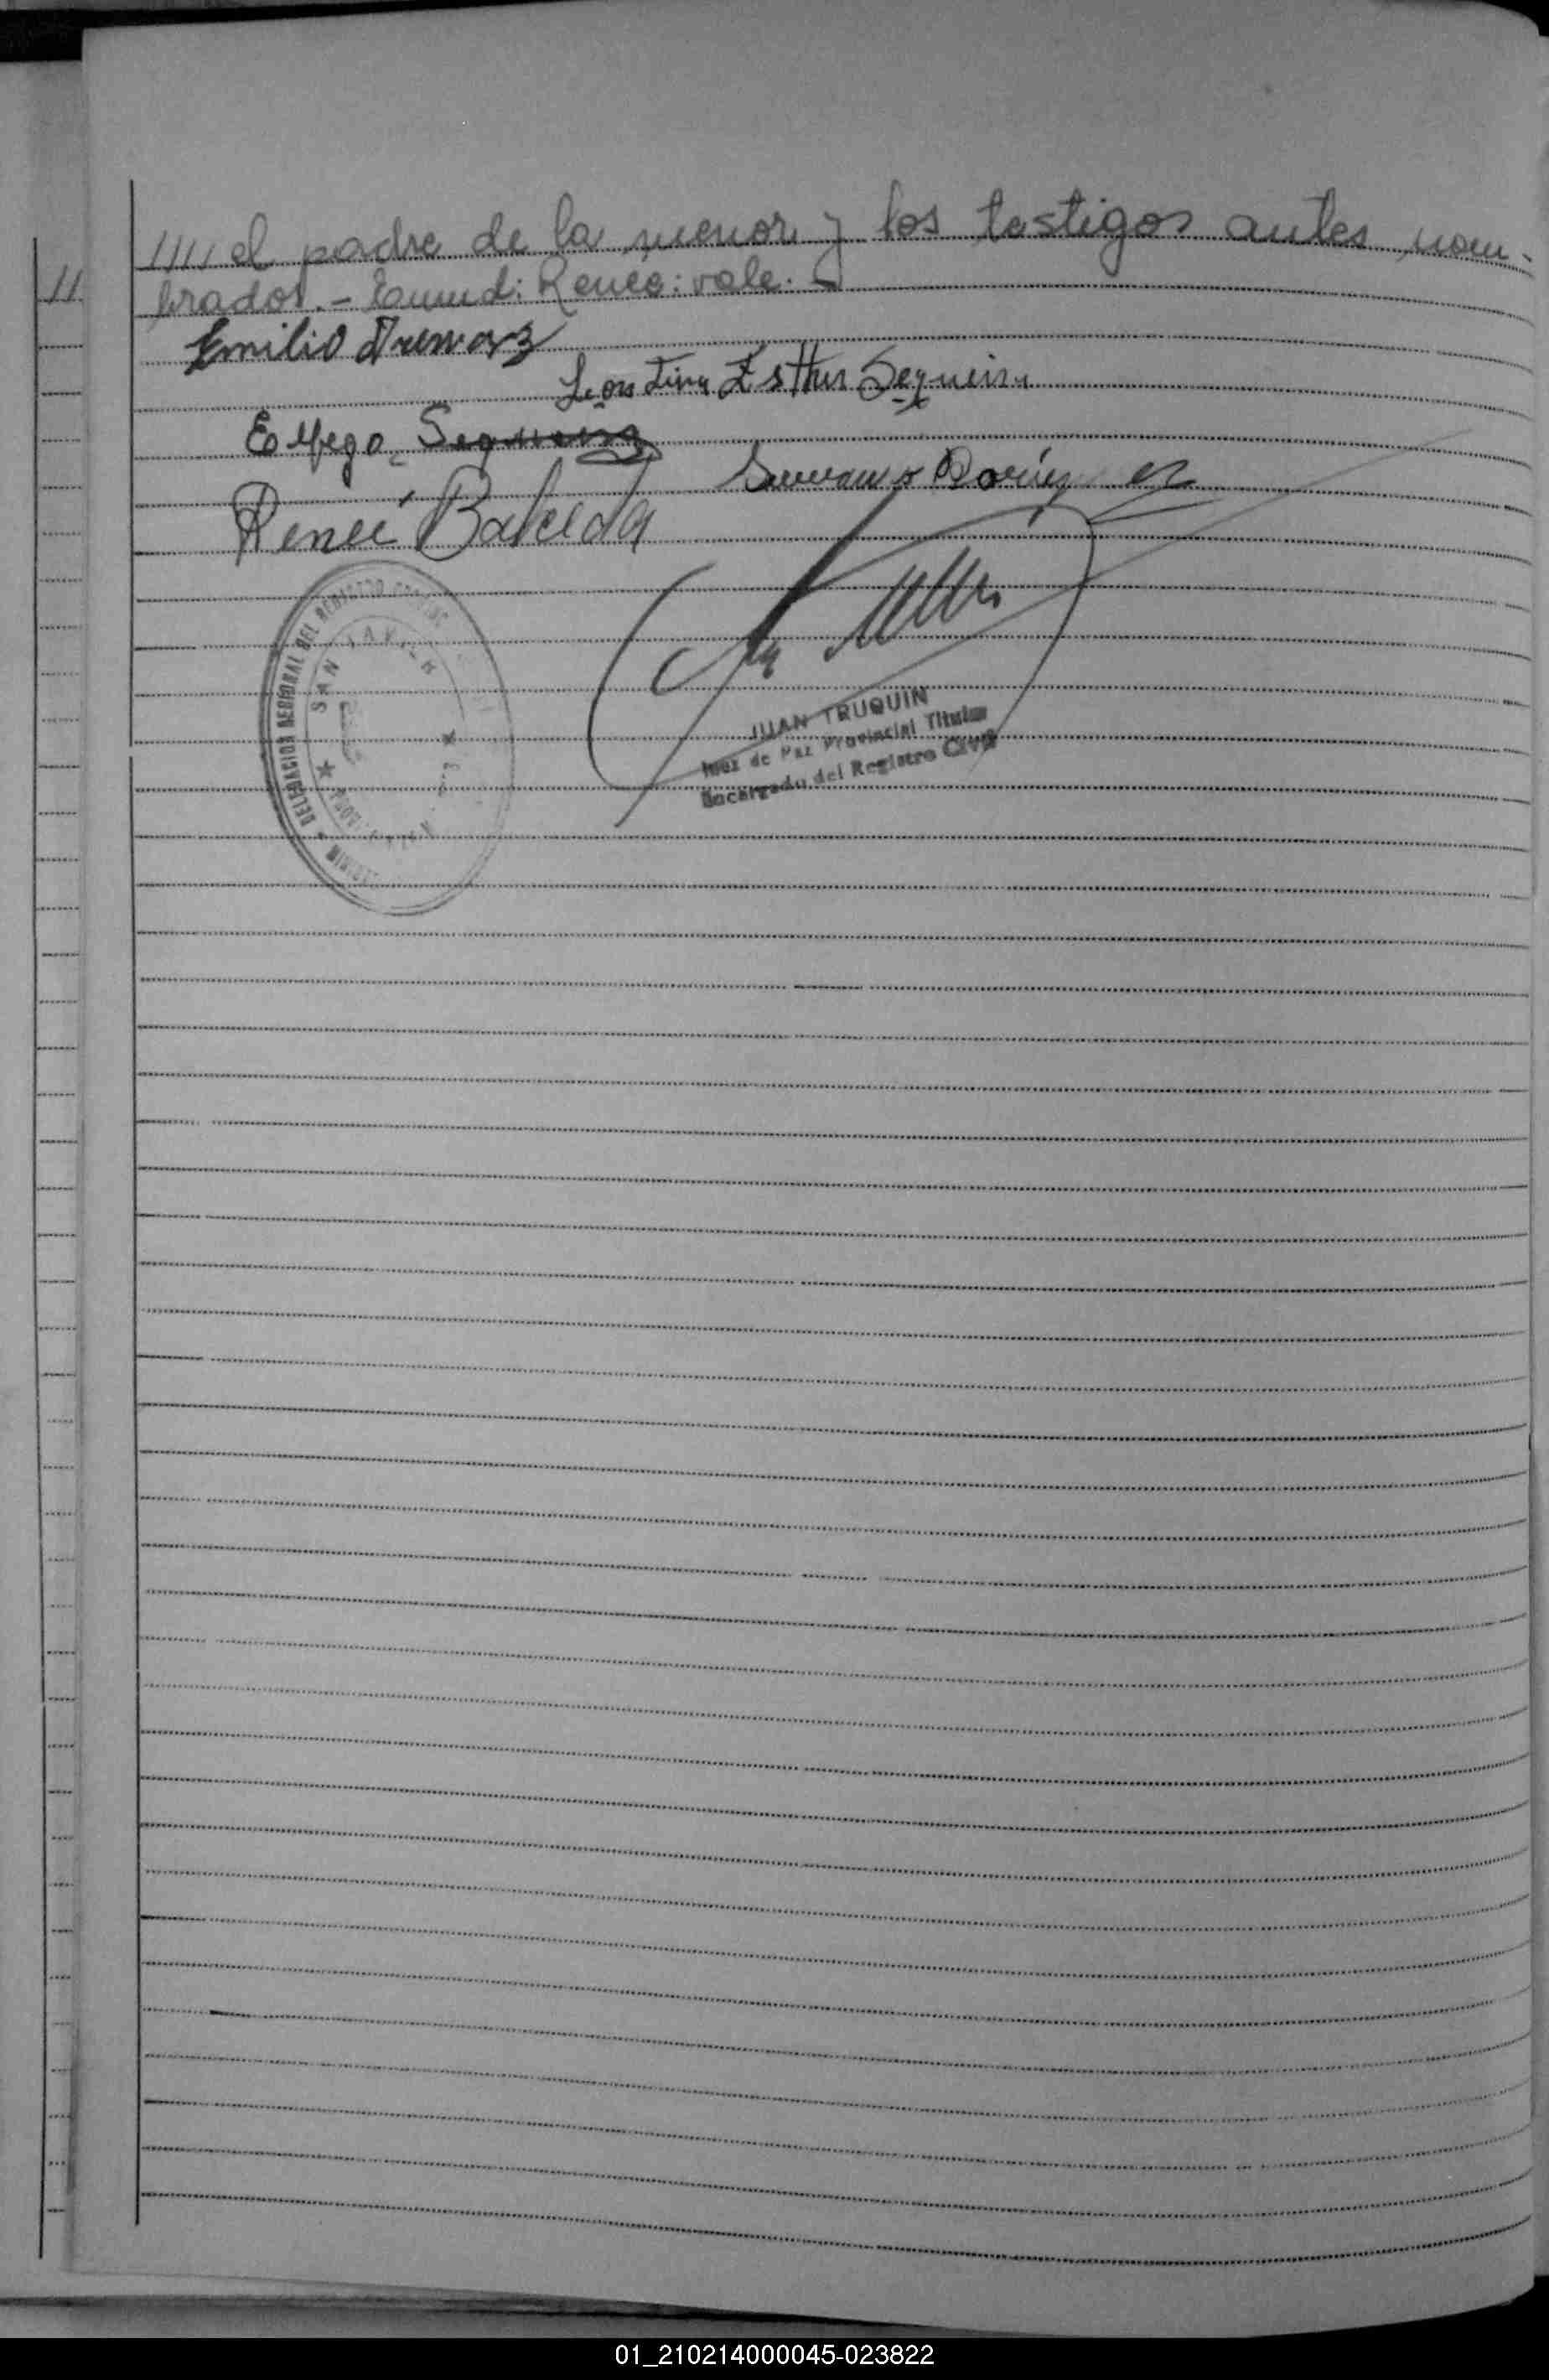 //// el padre de la menor y los testigos antes nom-
brados.- Enmd: Renée: vale.-
Emilio
Leontina Esther Sequeira
Elfego Sequeira
Renee Barcela
DELEGACION SECCIONAL DEL REGISTRO
SAN JAVIER
JUAN TRUQUIN
Juez de Paz Provincial Titular
Encargado del Registro Civil
//
01_210214000045-023822